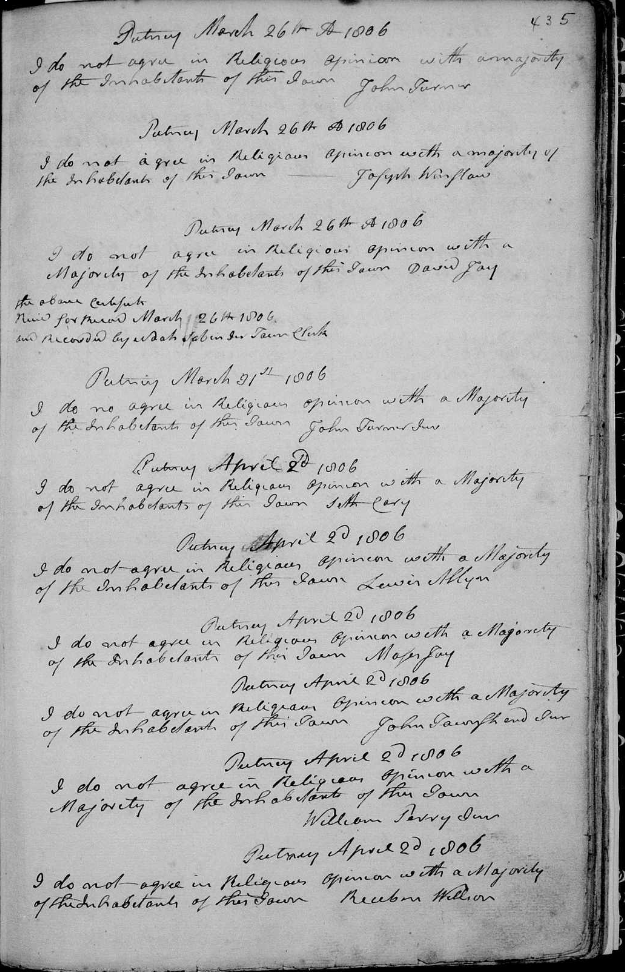 435
Putney March 26th AD 1806
I do not agree in Religious opinion with a majority
of the Inhabitants of this Town John Turner
Putney March 26th AD 1806
I do not agree in Religious opinion with a majority of
the Inhabitants of this Town Joseph Winslow
Putney March 26th AD 1806
I do not agree in Religious opinion with a
Majority of the Inhabitants of this Town David Jay
the above
for Record March 26th 1806
and Recorded by Town Clerk
Putney March 31st 1806
I do no agree in Religious opinion with a Majority
of the Inhabitants of this Town John Turner Jur
Putney April 2d 1806
I do not agree in Religious opinion with a Majority
of the Inhabitants of this Town Seth Cary
Putney April 2d 1806
I do not agree in Religious opinion with a Majority
of the Inhabitants of this Town Lewis Allyn
Putney April 2d 1806
I do not agree in Religious opinion with a Majority
of the Inhabitants of this Town Moses Jay
Putney April 2d 1806
I do not agree in Religious opinion with a Majority
of the Inhabitants of this Town John Townshend Jur
Putney April 2d 1806
I do not agree in Religious opinion with a
Majority of the Inhabitants of this Town
William Perry Jur
Putney April 2d 1806
I do not agree in Religious opinion with a Majority
of the Inhabitants of this Town Reuben Willson